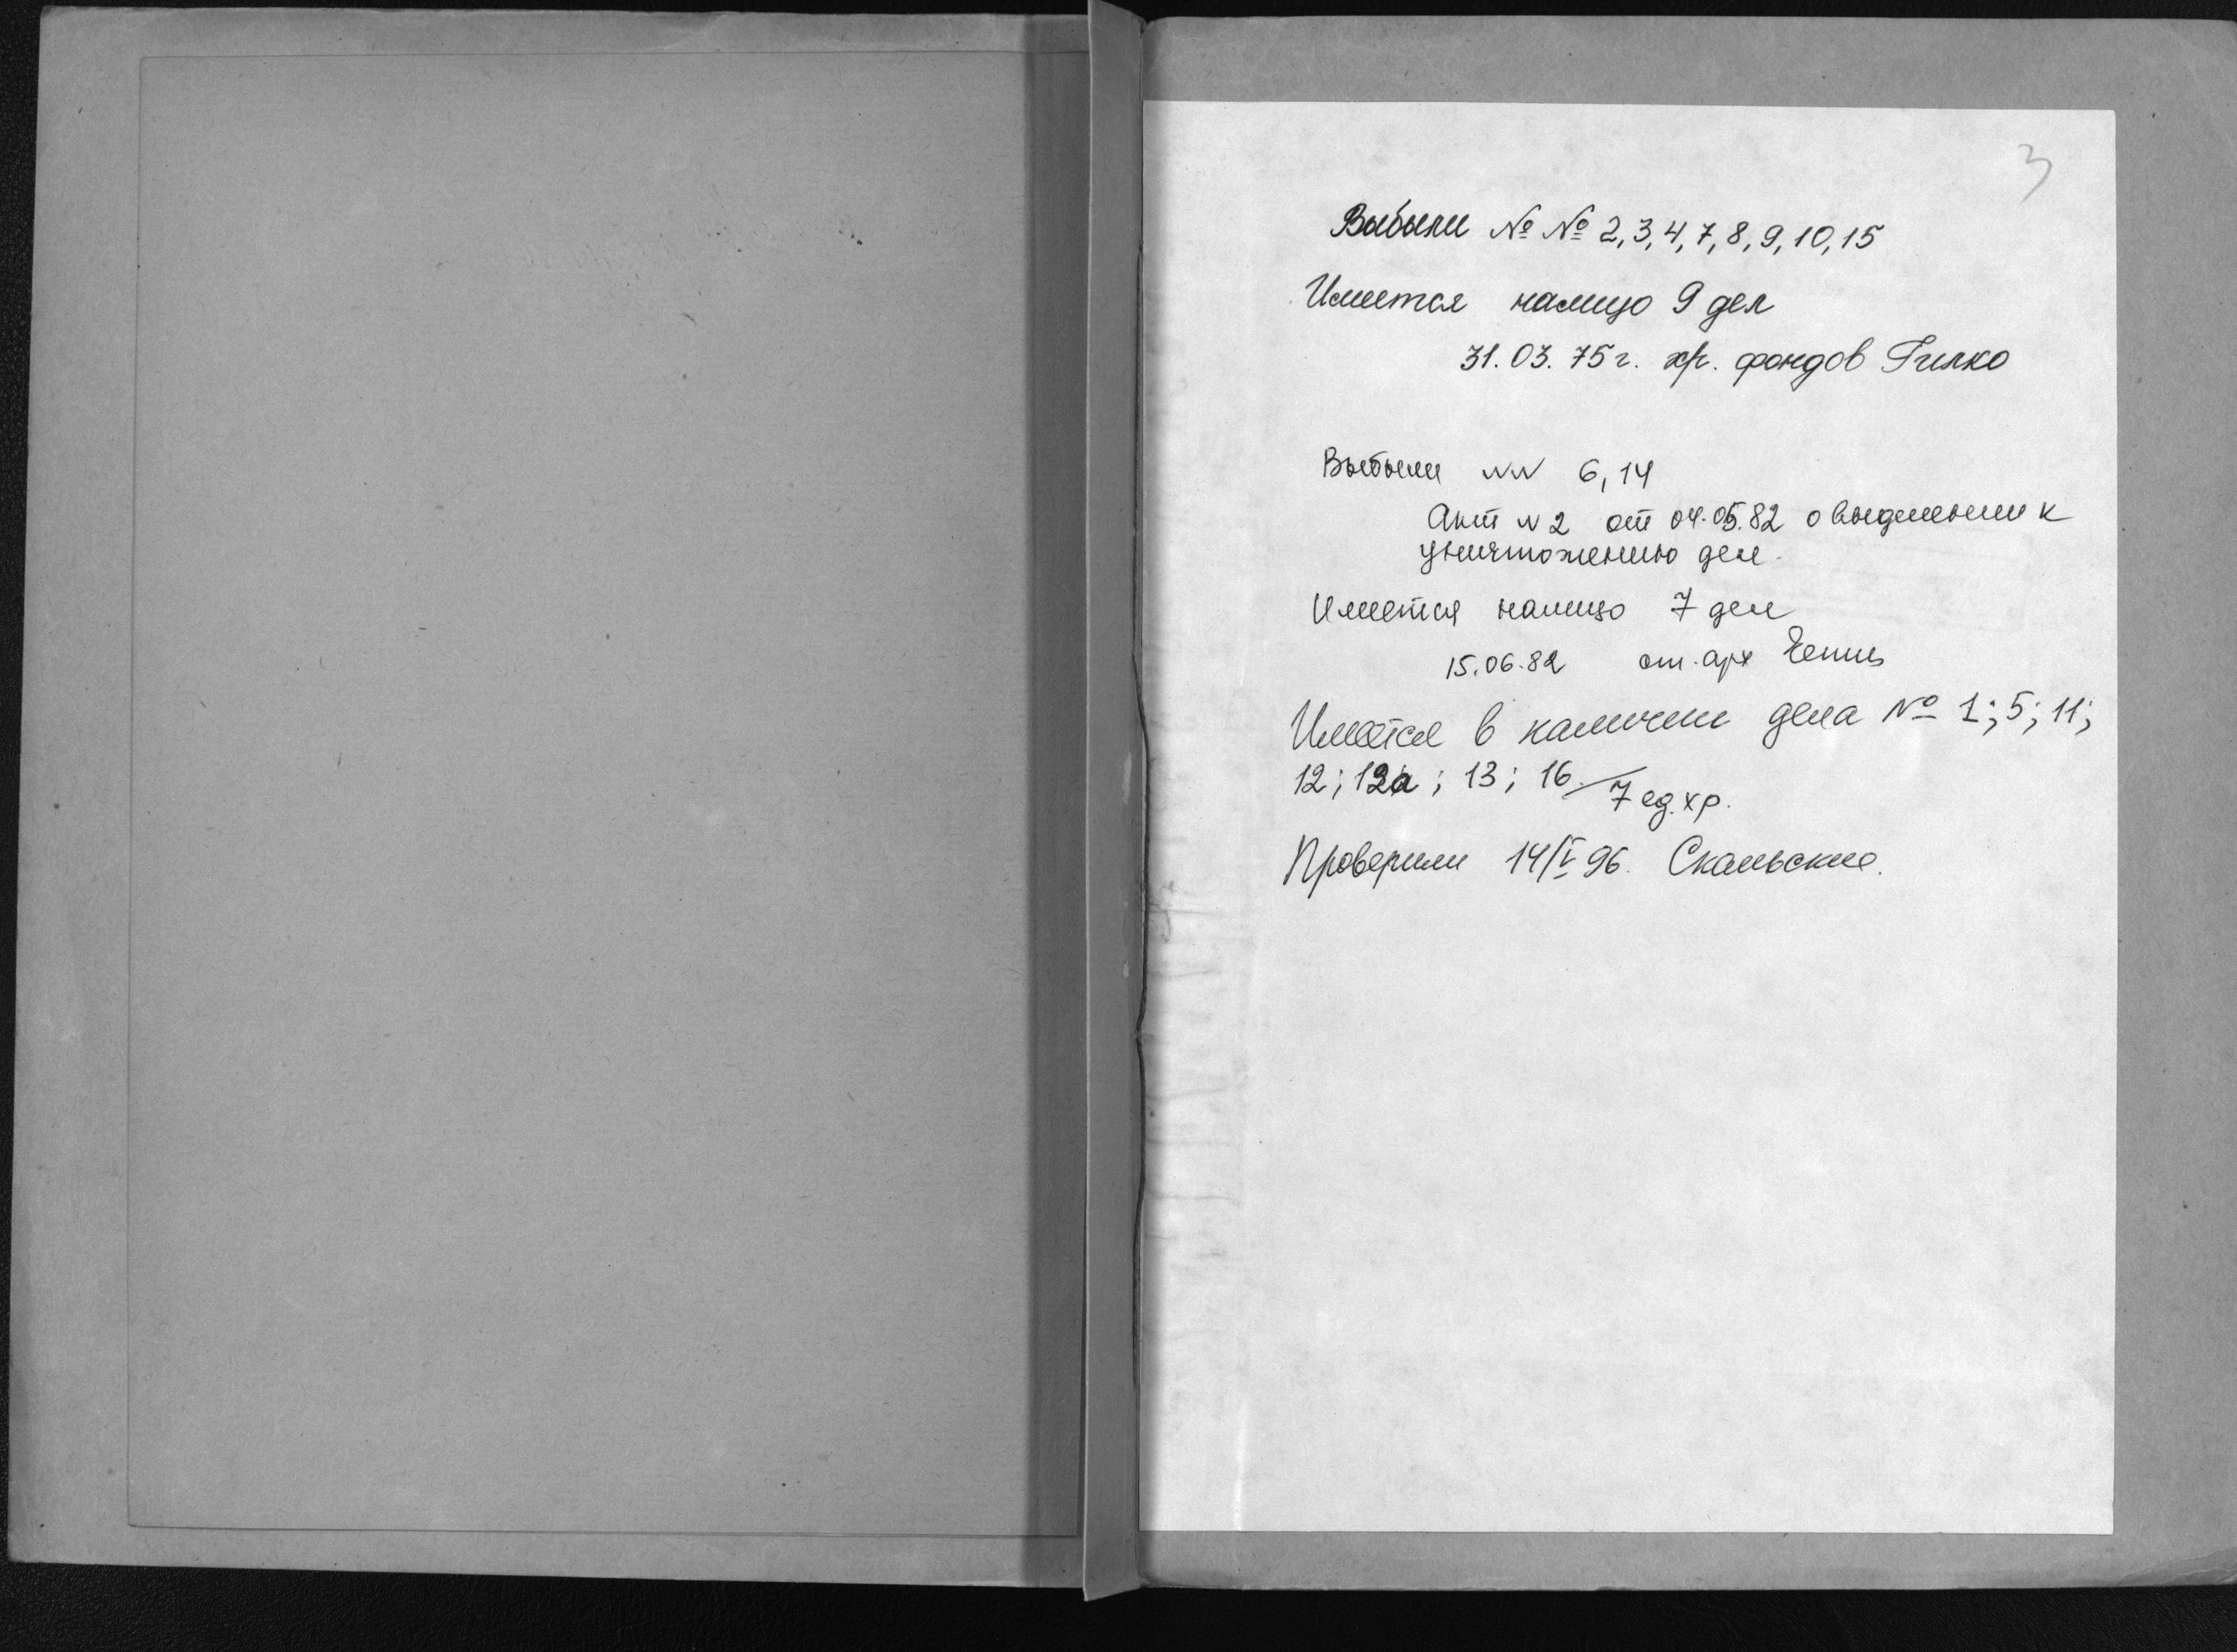 3
Выбыли № № 2, 3, 4, 7, 8, 9, 10, 15
Имеется налицо 9 дел
31. 03. 75 г. хр. фондов Гилко
Выбыли NN 6, 14
Акт N 2 от 04.05.82 о выделении к
уничтожению дел.
Имеется налицо 7 дел
15.06.82 ст. арх
Имеется в наличии дела № 1; 5; 11;
12; 12а; 13; 16.
7 ед. хр.
Проверили 14/V 96. Скальские.